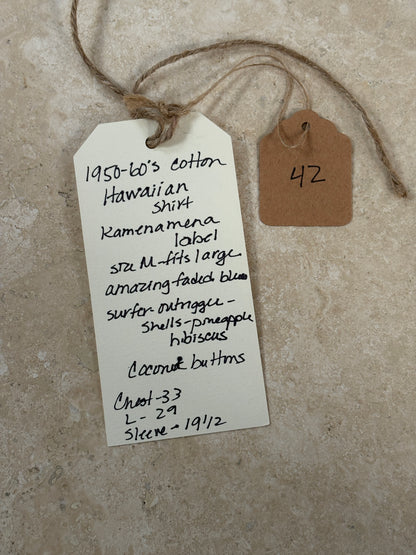 1950-60's cotton
Hawaiian
Shirt
Kamenamena
label
size M-fits large
amazing-faded blue
surfer-outrigger-
shells-pineapple
hibiscus
Coconut buttons
Chest-33
L-29
Sleeve-19 1/2
42